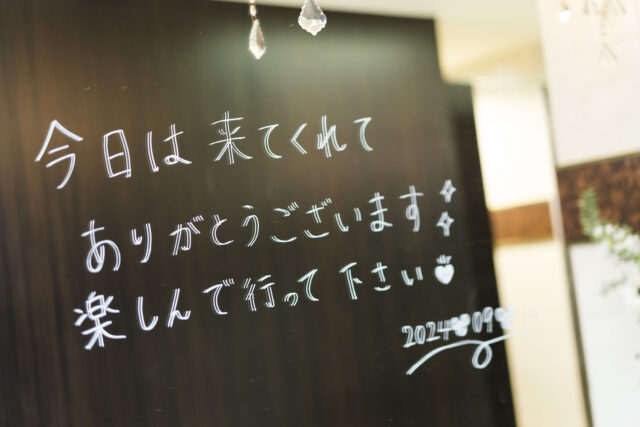 今日は来てくれて
ありがとうございます
楽しんで行って下さい
2024 09